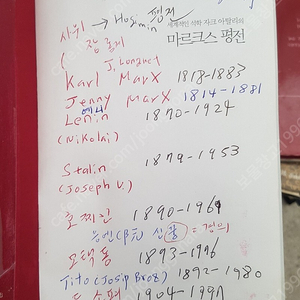 사위 → Hosimin 평전
세계적인 석학 자크 아탈리의
장 롱게
마르크스 평전
( J. Longuet
Karl Marx 1818-1883
Jenny Marx 1814-1881
예니
Lenin 1870-1924
(Nikolai)
Stalin 1879-1953
(Joseph V.)
호찌민 1890-1969
모택동 1893-1976
Tito (Josip Broz) 1892-1980
등소평 1904-1997